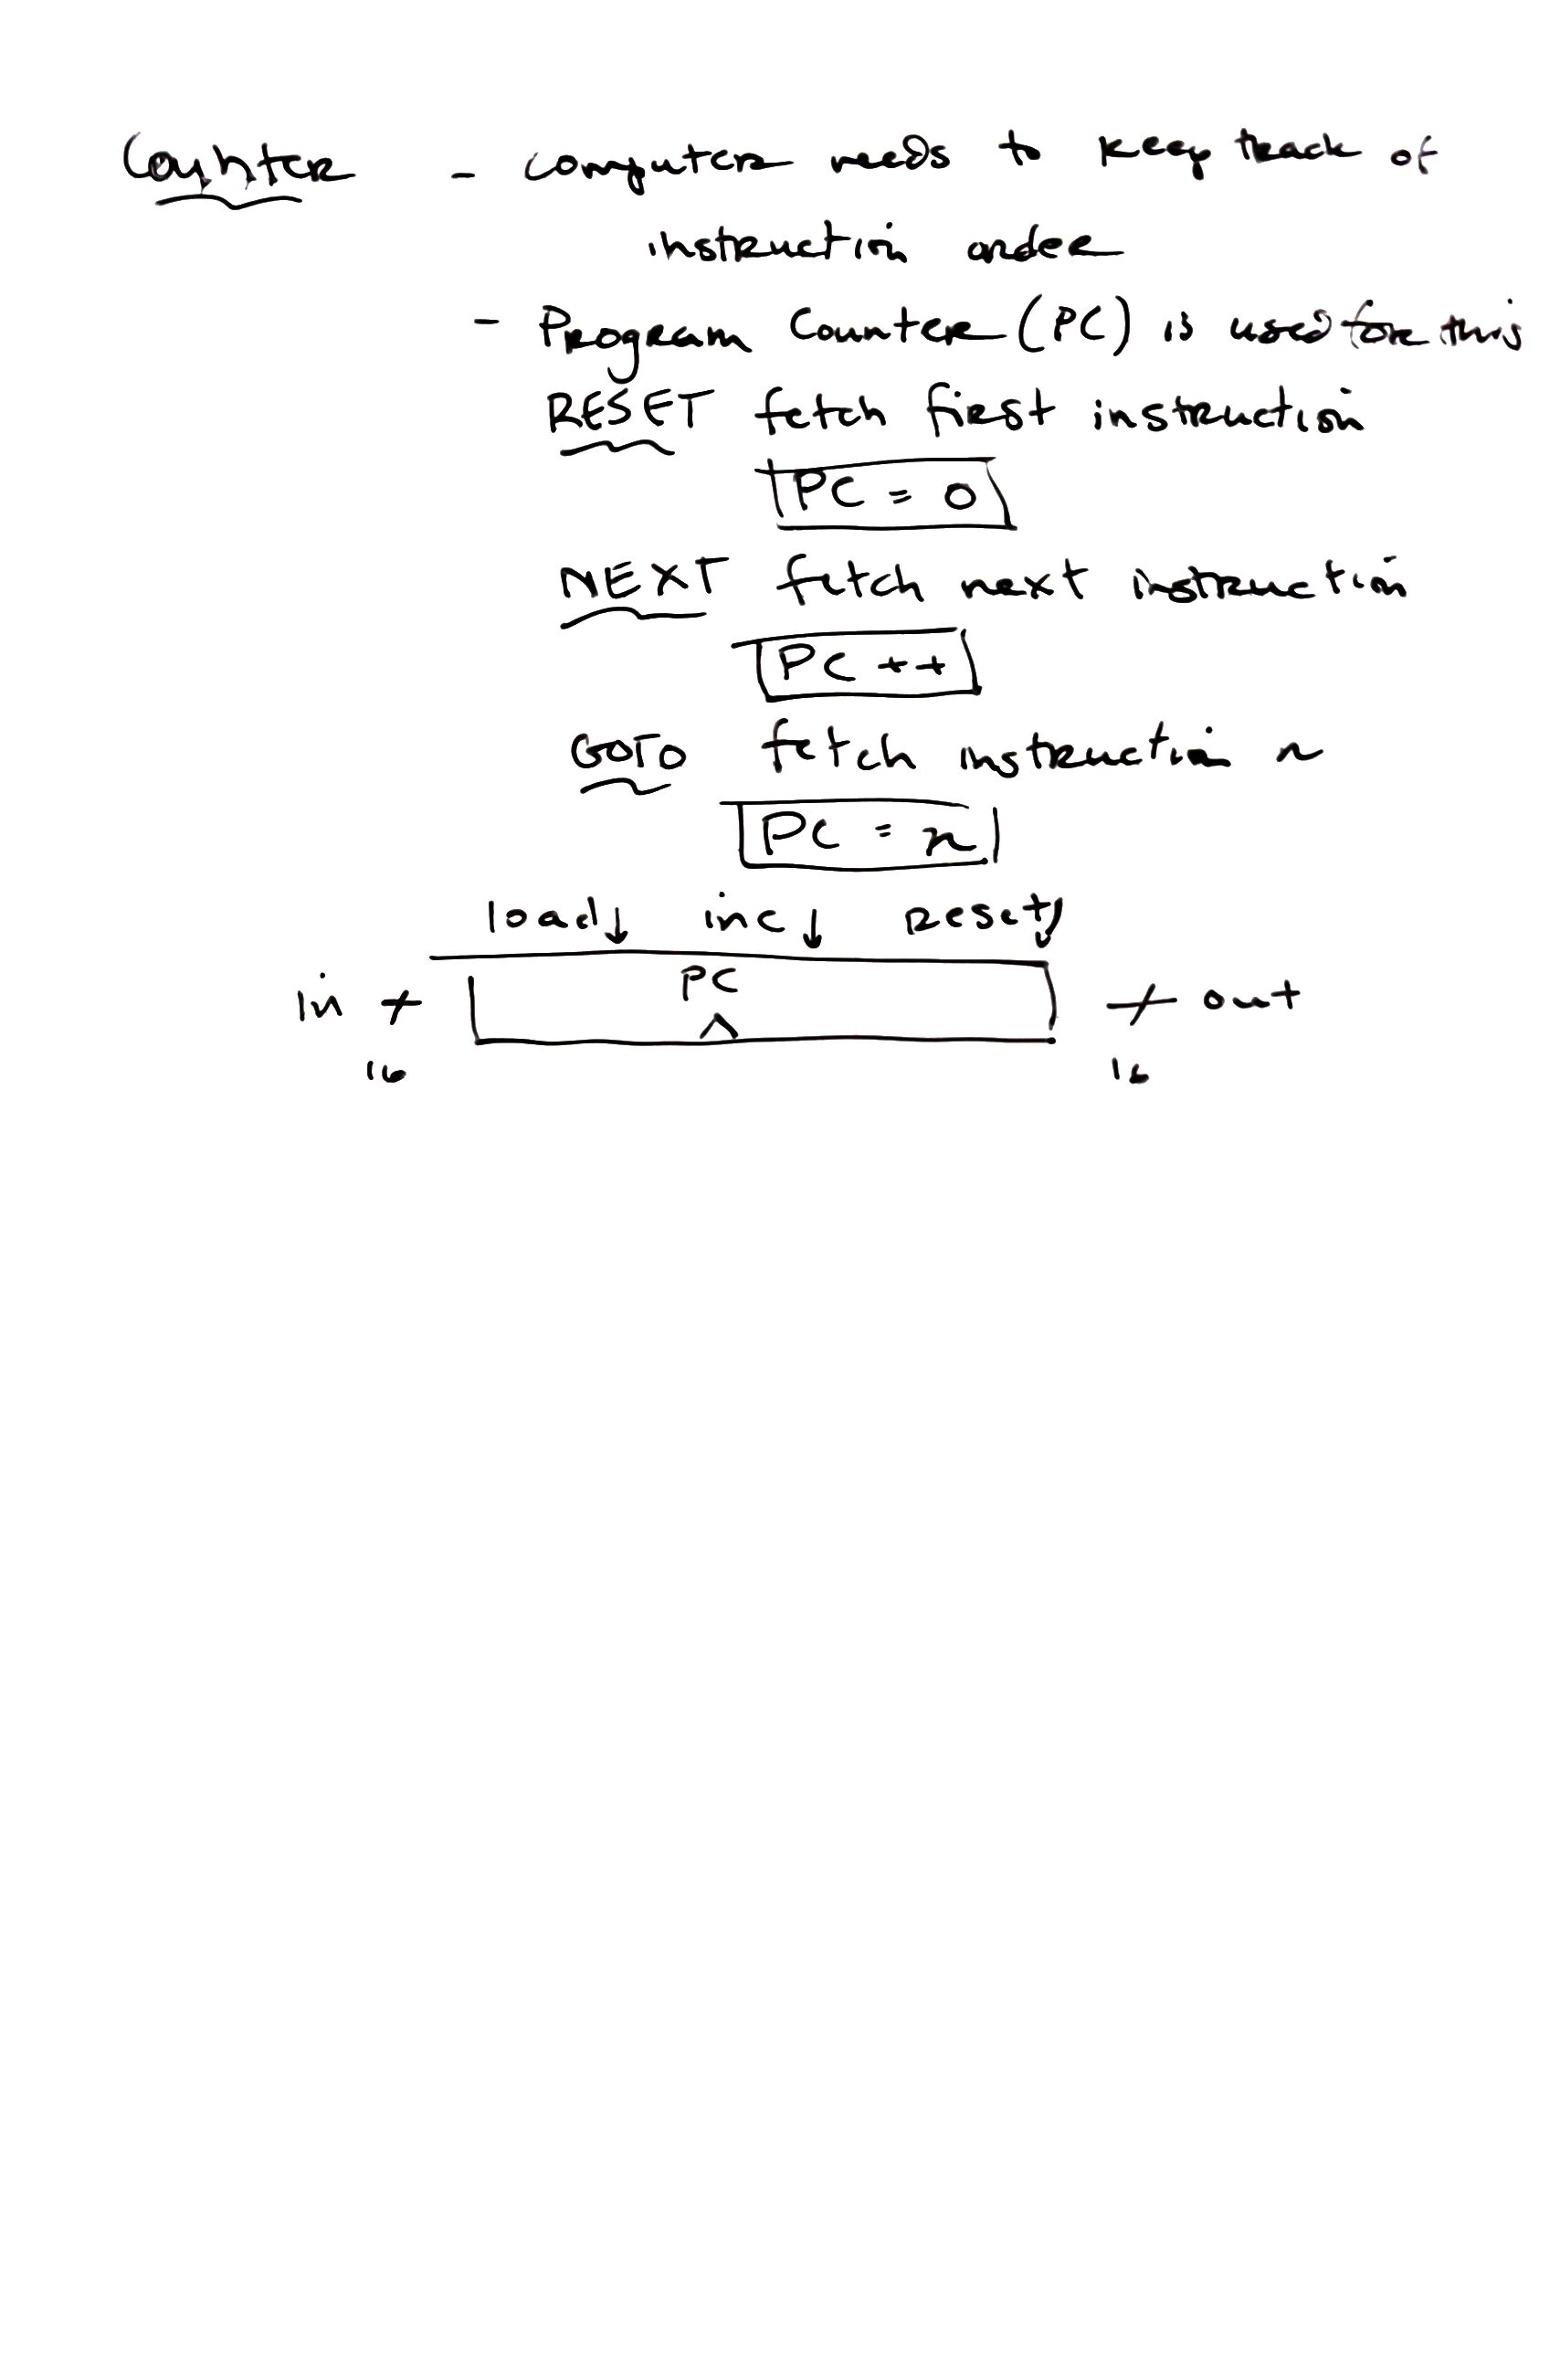 Counter - Computer needs to keep track of
instruction order
- Program Counter (PC) is used for this
RESET fetch first instruction
PC = 0
NEXT fetch next instruction
PC ++
GOTO fetch instruction n
PC = n
load↓ inc↓ reset↓
PC
in out
16 16